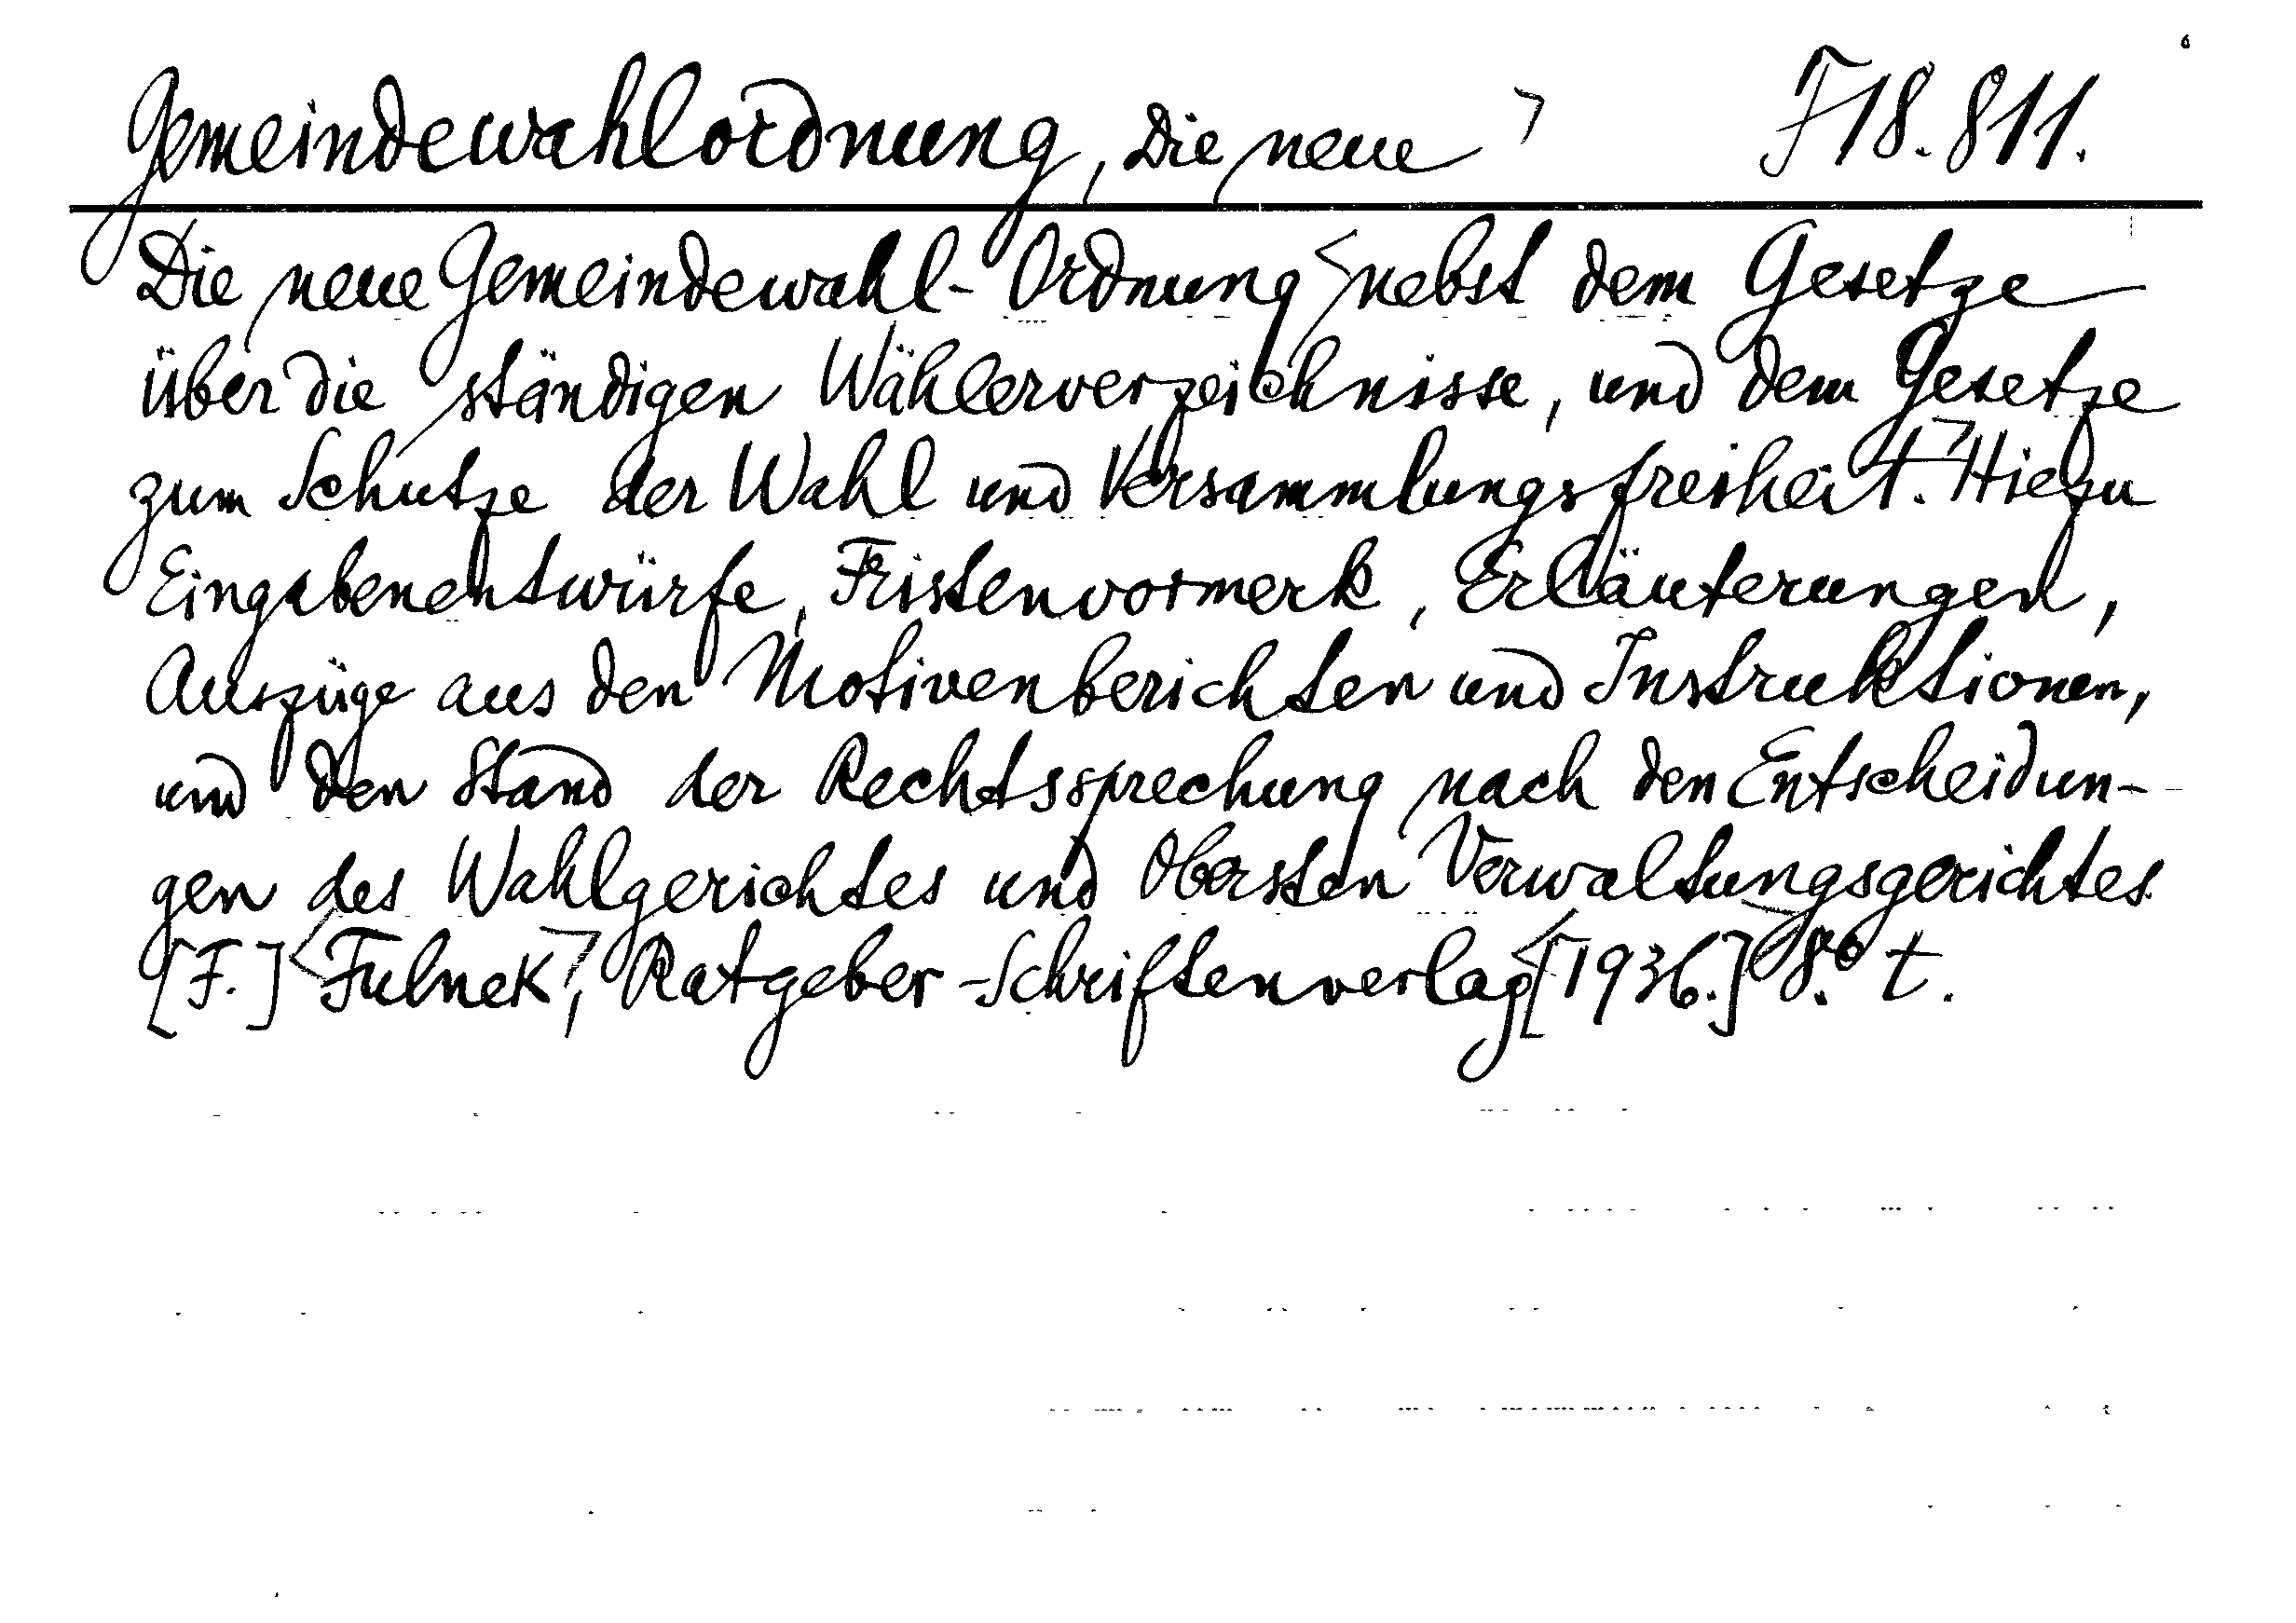 Gemeindewahlordnung, Die neue F 18.811.
Die neue Gemeindewahl-Ordnung nebst dem Gesetze
über die ständigen Wählerverzeichnisse, und dem Gesetze
zum Schutze der Wahl und Versammlungsfreiheit. Hiezu
Eingabenentwürfe, Fristenvormerk, Erläuterungen,
Auszüge aus den Motivenberichten und Instruktionen,
und den Stand der Rechtssprechung nach den Entscheidun-
gen des Wahlgerichtes und Obersten Verwaltungsgerichtes
[F.] Fulnek, Ratgeber-Schriftenverlag [1936.] 8.° t.